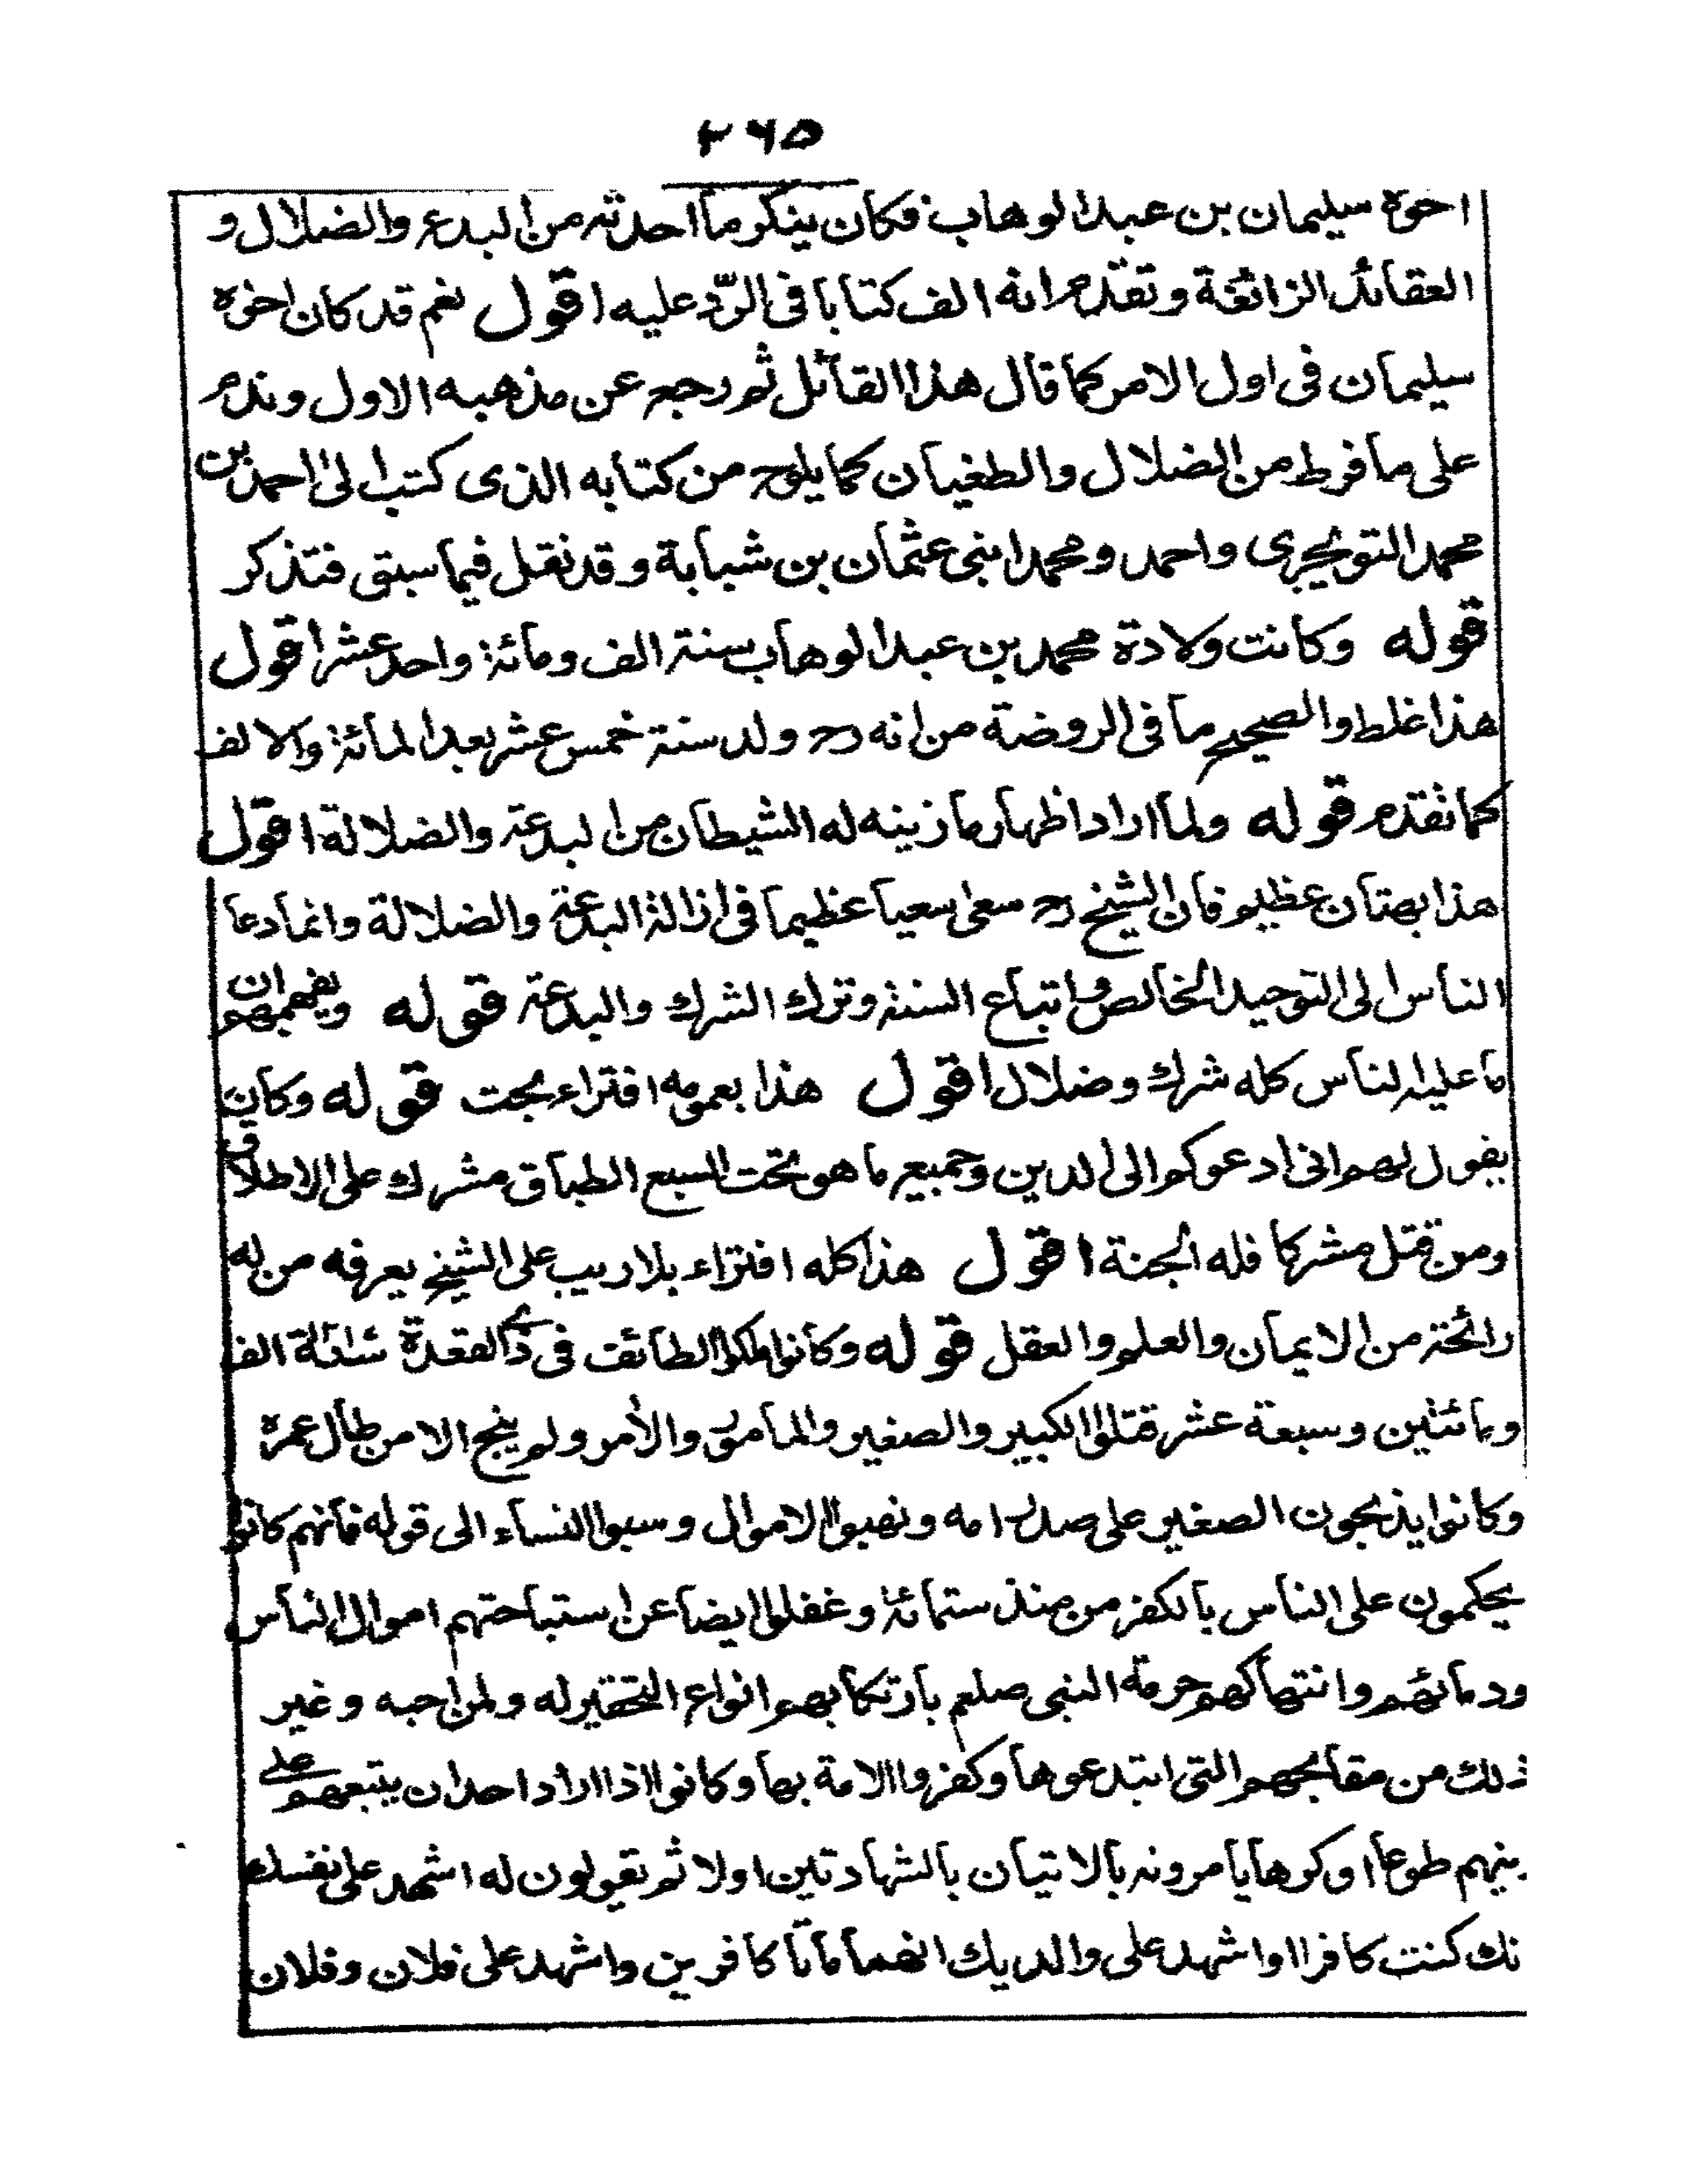 ٣٦٥
اخوه سليمان بن عبد الوهاب فكان ينكر ما احدثه من البدع والضلال و
العقائد الزائغة وتقدم انه الف كتابا فى الردّ عليه اقول نعم قد كان اخوه
سليمان فى اول الامر كما قال هذا القائل ثم رجع عن مذهبه الاول وندم
على ما فرط من الضلال والطغيان كما يلوح من كتابه الذى كتب الى احمد بن
محمد التويجرى واحمد ومحمد ابنى عثمان بن شبابة وقد نقل فيما سبق فتذكر
قوله وكانت ولادة محمد بن عبد الوهاب سنة الف ومائة واحد عشر اقول
هذا غلط والصحيح ما فى الروضة من انه رح ولد سنة خمس عشر بعد المائة والالف
كما تقدم قوله ولما اراد اظهار ما زينه له الشيطان من البدعة والضلالة اقول
هذا بهتان عظيم فان الشيخ رح سعى سعيا عظيما فى ازالة البدعة والضلالة وانما دعا
الناس الى التوحيد الخالص واتباع السنة وترك الشرك والبدعة قوله ويفهمهم ان
ما عليه الناس كله شرك وضلال اقول هذا بعمومه افتراء بحت قوله وكان
يقول لهم انى ادعوكم الى الدين وجميع ما هو تحت السبع الطباق مشرك على الاطلاق
ومن قتل مشركا فله الجنة اقول هذا كله افتراء بلا ريب على الشيخ يعرفه من له
رائحة من الايمان والعلم والعقل قوله وكانوا ملكوا الطائف فى ذى القعدة سنة الف
ومائتين وسبعة عشر قتلوا الكبير والصغير والمامور والأمر ولم ينج الا من طال عمره
وكانوا يذبحون الصغير على صدر امه ونهبوا الاموال وسبوا النساء الى قوله فانهم كانوا
يحكمون على الناس بالكفر من منذ ستمائة وغفلوا ايضا عن استباحتهم اموال الناس
ودمائهم وانتهاكهم حرمة النبى صلعم بارتكابهم انواع التحقير له ولمن احبه وغير
ذلك من مقابحهم التى ابتدعوها وكفروا الامة بها وكانوا اذا اراد احد ان يتبعهم على
دينهم طوعا او كرها يامرونه بالاتيان بالشهادتين اولا ثم يقولون له اشهد على نفسك
نك كنت كافرا واشهد على والديك انهما ماتا كافرين واشهد على فلان وفلان